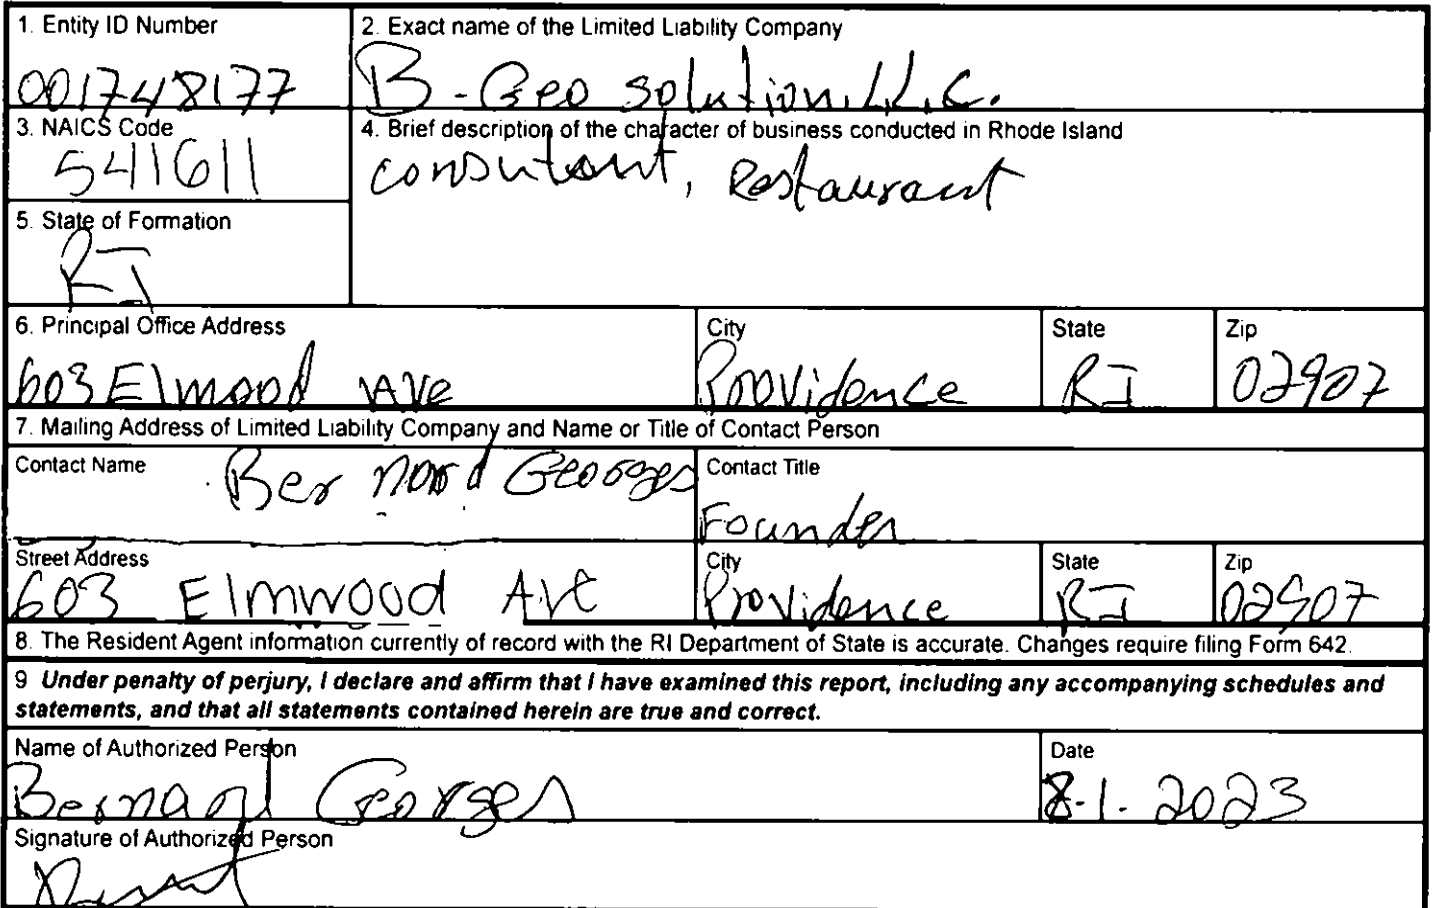 1. Entity ID Number
001748177
2. Exact name of the Limited Liability Company
B-Geo solution.L.L.C.
3. NAICS Code
541611
4. Brief description of the character of business conducted in Rhode Island
consutant, Restaurant
5. State of Formation
RI
6. Principal Office Address
603 Elmood Ave
City
Providence
State
RI
Zip
02907
7. Mailing Address of Limited Liability Company and Name or Title of Contact Person
Contact Name
Bernard Georges
Contact Title
Founder
Street Address
603 Elmwood Ave
City
Providence
State
RI
Zip
02907
8. The Resident Agent information currently of record with the RI Department of State is accurate. Changes require filing Form 642.
9 Under penalty of perjury, I declare and affirm that I have examined this report, including any accompanying schedules and
statements, and that all statements contained herein are true and correct.
Name of Authorized Person
Bernard Georges
Date
8-1-2023
Signature of Authorized Person